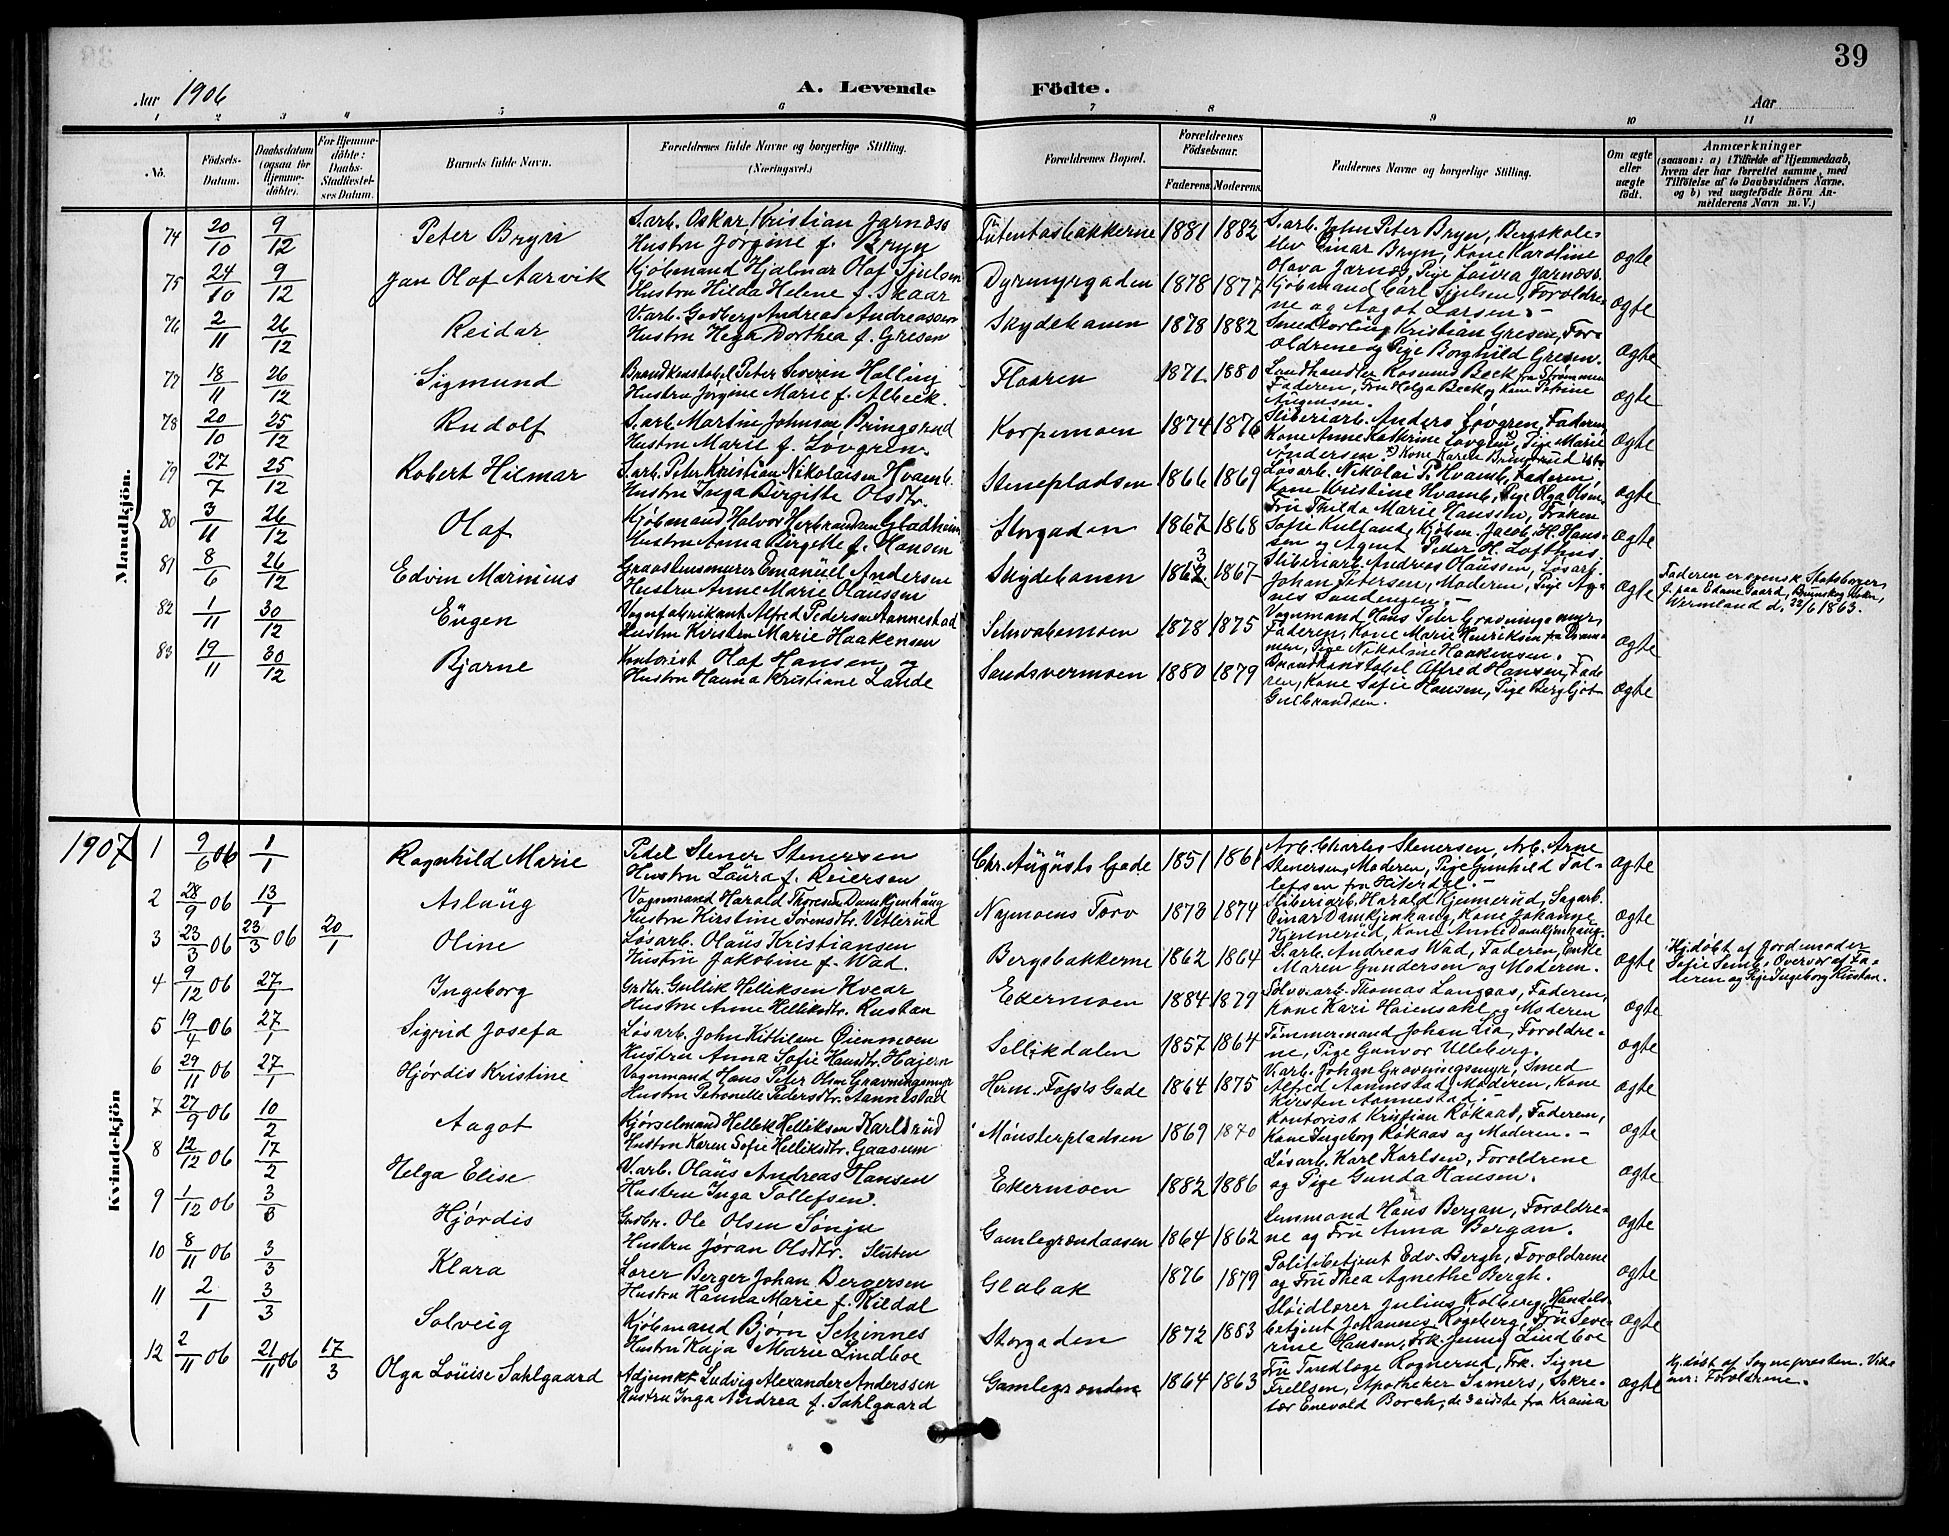 39
Aar 1906
A. Levende Födte.
Aar
1 2 3 4 5 6 7 8 9 10 11
No. Födsels-Datum. Daabsdatum (ogsaa for Hjemmedöbte). For Hjemmedöbte: Daabs-Stadfæstelses Datum. Barnets fulde Navn. Forældrenes fulde Navne og borgerlige Stilling. (Næringsvei.) Forældrenes Bopæl. Forældrenes Födselsaar. Faderens. Moderens. Faddernes Navne og borgerlige Stilling. Om ægte eller uægte födt. Anmærkninger (saasom: a) i Tilfælde af Hjemmedaab, hvem der har forrettet samme, med Tilföielse af to Daabsvidners Navne, og b) ved uægtefödte Börn Anmelderens Navn m. V.)
Mandkjön.
74 20/10 9/12 Peter Bryn S.arb. Oskar Kristian Jarnæss Hustru Jørgine f. Bryn Futentasbakkerne 1881 1882 S.arb. John Peter Bryn, Bergskoleelev Einar Bryn, Kone Karoline Olava Jarnæs, Pige Laura Jarnæss. ægte
75 24/10 9/12 Jan Olaf Aarvik Kjøbmand Hjalmar Olaf Sjulsen Hustru Hilda Helene f. Skaar Dyrmyrgaden 1878 1877 Kjøbmand Carl Sjulsen, Forældrene og Aagot Larsen. ægte
76 2/11 26/12 Reidar V.arb. Godberg Andreas Andreassen Hustru Helga Dorthea f. Gresen Skydebanen 1878 1882 Smedkorling Kristian Gresen, Forældrene og Pige Borghild Gresen. ægte
77 18/11 26/12 Sigmund Brandkonstabel Peter Severin Halling Hustru Jørgine Marie f. Albeck. Flaaren 1871 1880 Landhandler Rasmus Beck fra Strømmen Faderen, Fru Helga Beck og Kone Petrine Jørgensen. ægte
78 20/10 25/12 Rudolf S.arb. Martin Johnsen Bringsrud Hustru Marie f. Løvgren. Korpemoen 1874 1876 Sliberiarb. Anders Løvgren, Faderen Kone Anne Kathrine Løvgren, Pige Marie Andersen x) Kone Karen Bringsrud ægte
79 27/7 25/12 Robert Hilmar S.arb. Peter Kristian Nikolaisen Hvamb. Hustru Inga Birgitte Olsdtr. Stenepladsen 1866 1869 Løsarb. Nikolai P. Hvamb, Faderen, Kone Kristine Hvamb, Pige Olga Olsen. ægte
80 3/11 26/12 Olaf Kjøbmand Halvor Herbrandsen Gladheim Hustru Anna Birgitte f. Hansen Storgaden 1867 1868 Fru Thilda Marie Hanssen, Frøken Sofie Kulland, Kjøbm. Jacob H. Hansen og Agent Peder H. Lofthus. ægte
81 8/6 26/12 Edvin Marinius Graastensmurer Emanuel Andersen Hustru Anne Marie Olaussen Skydebanen 1863 1867 Sliberiarb. Andreas Olaussen, Løsarb. Johan Petersen, Moderen, Pige Agnes Sandengen. ægte Faderen er svensk Statsborger, f. paa Edane Gaard, Brunskog Sokn, Wermland d. 22/6 1863.
82 1/11 30/12 Eugen Vognfabrikant Alfred Pedersen Aannestad Hustru Kirsten Marie Haakensen Schvabemoen 1878 1875 Vognmand Hans Peter Gravningsmyr, Faderen, Kone Marie Henriksen fra Drammen, Pige Nikoline Haakensen. ægte
83 19/11 30/12 Bjarne Kontorist Olaf Hansen og Hustru Hanna Kristiane Lande Sandsvermoen 1880 1879 Brandkonstabel Alfred Hansen, Faderen, Kone Sofie Hansen, Pige Bergljot Gulbrandsen. ægte
1907
Kvindekjön
1 9/6 06 1/1 Ragnhild Marie Pedel Stener Stenersen Hustru Laura f. Reiersen Chr. Augusts Gade 1851 1861 Arb. Charles Stenersen, Arb. Arne Stenersen, Moderen, Pige Gunhild Tollefsen fra Hiterdal. ægte
2 28/9 06 13/1 Aslaug Vognmand Harald Thoresen Damkjenhaug Hustru Kirstine Sørensdtr. Vitterud Nymoens Torv 1873 1874 Sliberiarb. Harald Kjennerud, Sagarb. Einar Damkjenhaug, Kone Johanne Kjennerud, Kone Anette Damkjenhaug. ægte
3 23/3 06 23/3 06 20/1 Oline Løsarb. Olaus Kristiansen Hustru Jakobine f. Wad. Bergsbakkerne 1862 1864 S.arb. Andreas Wad, Faderen, Enke Maren Gundersen og Moderen. ægte Hj.døbt af Jordemoder Sofie Semb. Overvær af Faderen og Pige Ingeborg Rustan.
4 9/12 06 27/1 Ingeborg Grdbr. Gullik Helliksen Kvear Hustru Anne Helliksdtr. Rustan Ekermoen 1884 1879 Sølvv.arb. Thomas Langaas, Faderen, Kone Kari Haiensahl og Moderen ægte
5 19/4 06 27/1 Sigrid Josefa Løsarb. John Kittilsen Øienmoen Hustru Anna Sofie Hansdtr. Hajern Sellikdalen 1857 1864 Tømmermand Johan Lia, Forældrene, Pige Gunvor Ulleberg. ægte
6 29/11 06 27/1 Hjørdis Kristine Vognmand Hans Peter Olsen Gravningsmyr Hustru Petronelle Pedersdtr. Aannestad Herm. Foss's Gade 1864 1875 V.arb. Johan Gravningsmyr, Smed Alfred Aannestad, Moderen, Kone Kirsten Aannestad. ægte
7 27/9 06 10/2 Aagot Kjørselmand Hellik Helliksen Karlsrud Hustru Karen Sofie Helliksdtr. Gaasum Münsterpladsen 1869 1870 Kontorist Kristian Røkaas, Faderen, Kone Ingeborg Røkaas og Moderen. ægte
8 12/12 06 17/2 Helga Elise V.arb. Olaus Andreas Hansen Hustru Inga Tollefsen. Ekermoen 1882 1886 Løsarb. Karl Karlsen, Forældrene og Pige Gunda Hansen. ægte
9 1/12 06 3/3 Hjørdis Grdbr. Ole Olsen Sønju Hustru Jøran Olsdtr. Stuten Gamlegrændaasen 1864 1862 Lensmand Hans Bergan, Forældrene og Fru Anna Bergan. ægte
10 8/11 06 3/3 Klara Lærer Berger Johan Bergersen Hustru Hanna Marie f. Kildal Glabak 1876 1879 Politibetjent Edv. Bergh, Forældrene og Fru Thea Agnethe Bergh. ægte
11 2/1 3/3 Solveig Kjøbmand Bjørn Schinnes Hustru Kaja Marie Lindboe Storgaden 1872 1883 Sløidlærer Julius Kolberg, Handelsbetjent Johannes Kogeberg, Fru Severine Hansen, Frk. Jenny Lindboe ægte
12 2/11 06 21/11 06 17/3 Olga Louise Sahlgaard Adjunkt Ludvig Alexander Anderssen Hustru Inga Andrea f. Sahlgaard Gamlegrænden 1864 1863 Fru Tandlæge Rognerud, Frk. Signe Frellsen, Apotheker Simers, Sekretær Enevald Borch, de 3 sidste fra Krania ægte Hj.døbt af Sognepresten. Vidner: Forældrene.